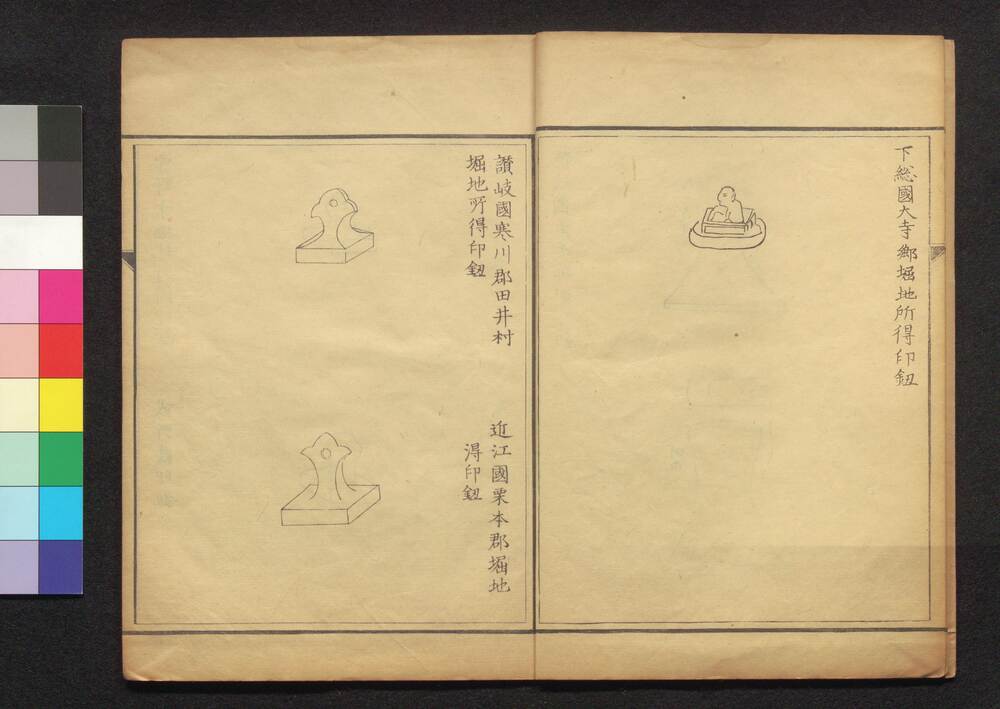 下総國大寺鄉堀地所得印鈕
讃岐國寒川郡田井村
堀地所得印鈕
近江國栗本郡堀地
得印鈕